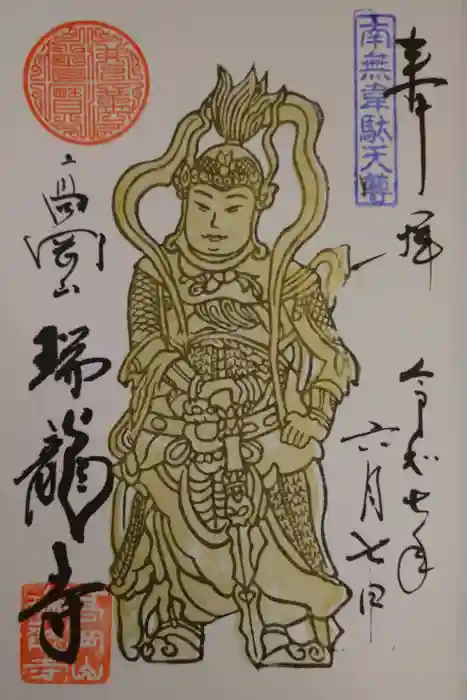 奉拝
南無韋駄天尊
令和七年
六月七日
高岡山
瑞龍寺
高岡山
瑞龍寺